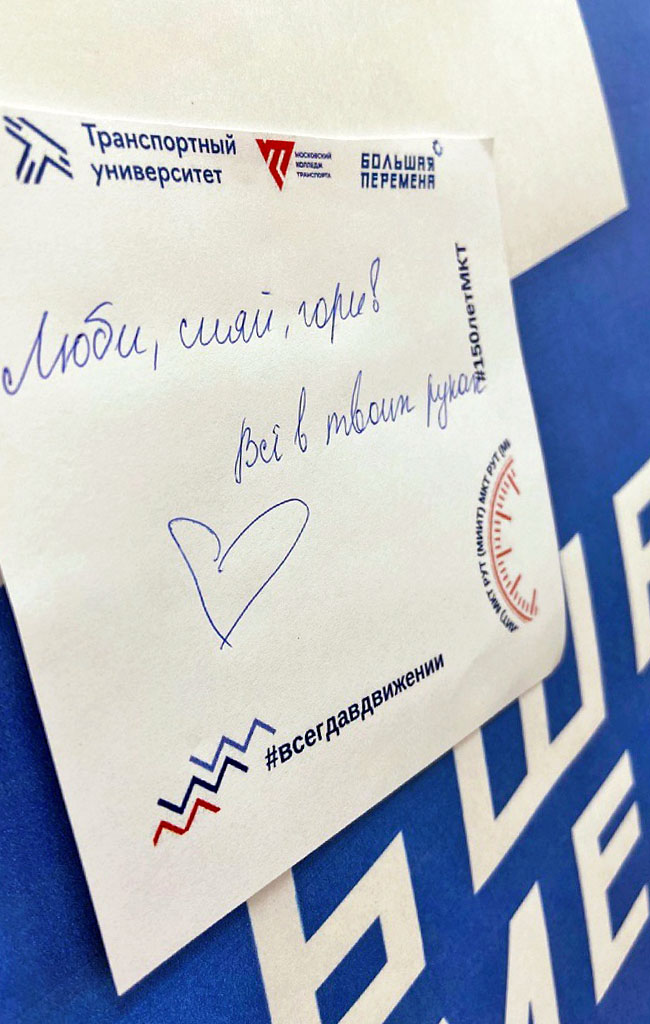 Транспортный
университет
МОСКОВСКИЙ
КОЛЛЕДЖ
ТРАНСПОРТА
БОЛЬШАЯ
ПЕРЕМЕНА
#150летМКТ
Люби, сияй, гори!
Всё в твоих руках
МКТ РУТ (МИИТ) МКТ РУТ
#всегдавдвижении